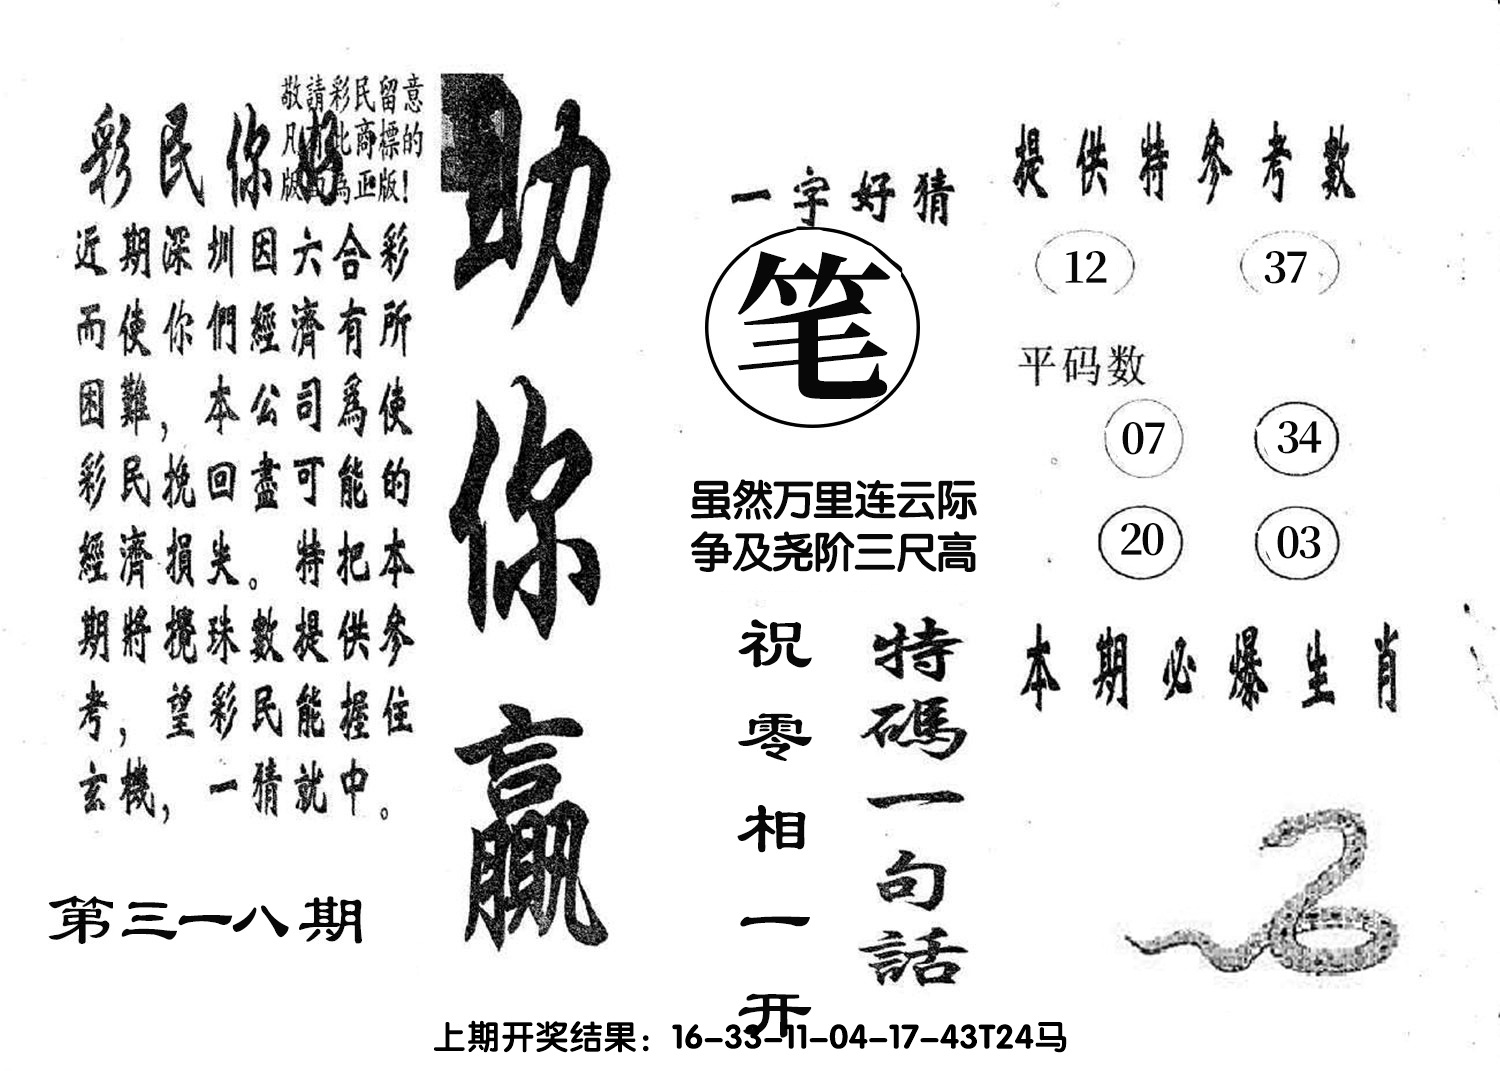 敬請彩民留意
凡有此商標的
版面為正版!
彩民你好
近期深圳因六合彩
而使你們經濟有所
困難，本公司爲使
彩民挽回盡可能的
經濟損失。特把本
期將攪珠數提供參
考，望彩民能握住
玄機，一猜就中。
第三一八期
助你贏
一字好猜
笔
虽然万里连云际
争及尧阶三尺高
特碼一句話
祝零相一开
提供特參考數
12 37
平码数
07 34
20 03
本期必爆生肖
上期开奖结果：16-33-11-04-17-43T24马